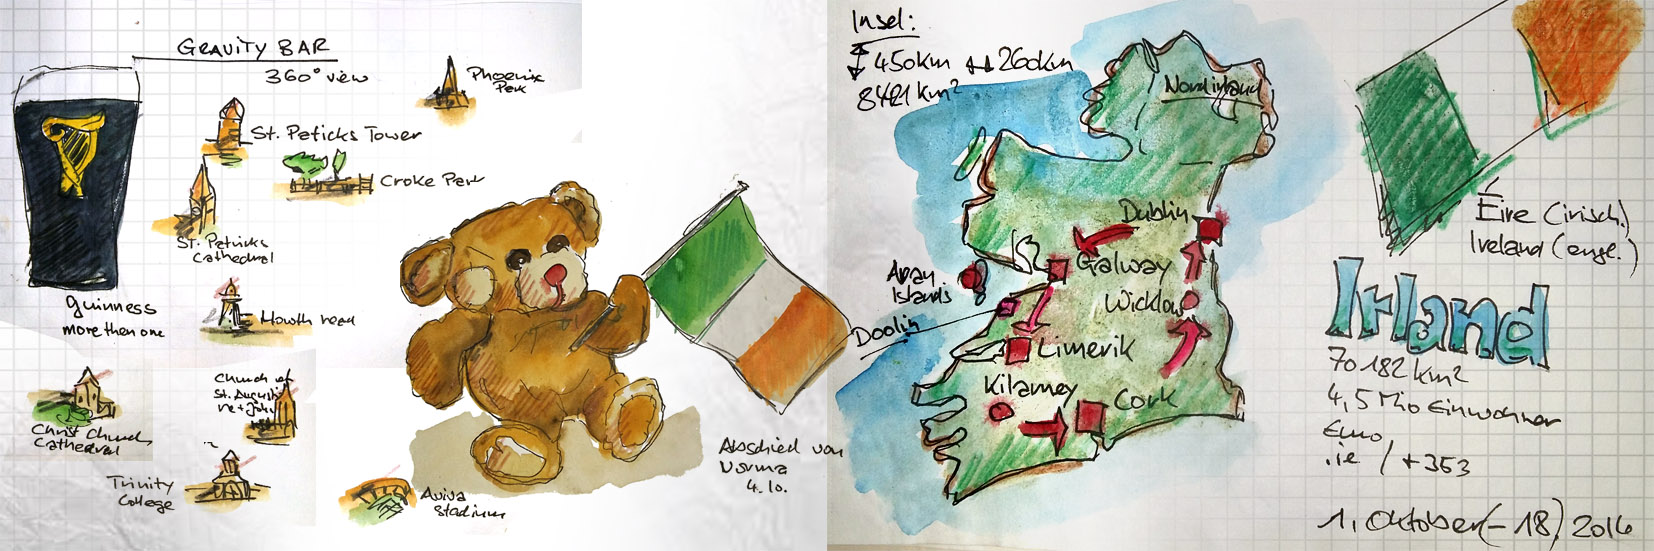 GRAVITY BAR
360° view
Phoenix
Park
St. Paticks Tower
Croke Park
St. Patricks
Cathedral
guinness
more then one
Howth head
Christ Church
Cathedral
Church of
St. Augusti
ne + John
Trinity
College
Aviva
Stadium
Abschied von
Norma
4.10.
Insel:
450km 260km
8421 km²
Nordirland
Dublin
Galway
Aran
Islands
Wicklow
Doolin
Limerik
Kilarney
Cork
Éire (irisch)
Ireland (engl.)
Irland
70182 km²
4,5 Mio Einwohner
Euro
.ie / +353
1. Oktober (- 18.) 2016